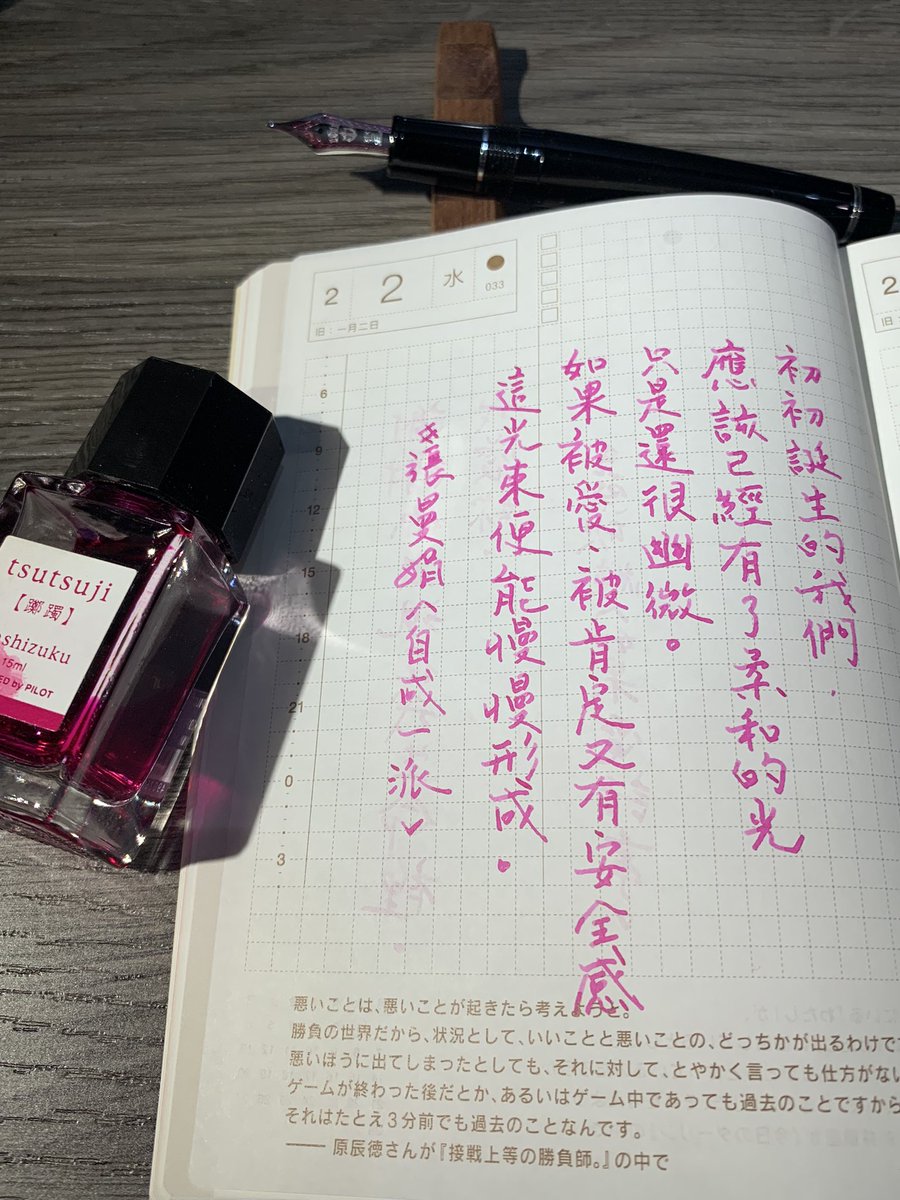 2 2 水 033
旧：一月二日
初初誕生的我們，
應該已經有了柔和的光
只是還很幽微。
如果被愛、被肯定又有安全感
這光束便能慢慢形成。
張曼娟〈自成一派〉
6
9
12
15
18
21
0
3
悪いことは、悪いことが起きたら考えようと。
勝負の世界だから、状況として、いいことと悪いことの、どっちかが出るわけで
悪いほうに出てしまったとしても、それに対して、とやかく言っても仕方がない
ゲームが終わった後だとか、あるいはゲーム中であっても過去のことですから
それはたとえ3分前でも過去のことなんです。
―― 原辰徳さんが『接戦上等の勝負師。』の中で
tsutsuji
【躑躅】
oshizuku
15ml
ED by PILOT
2
旧